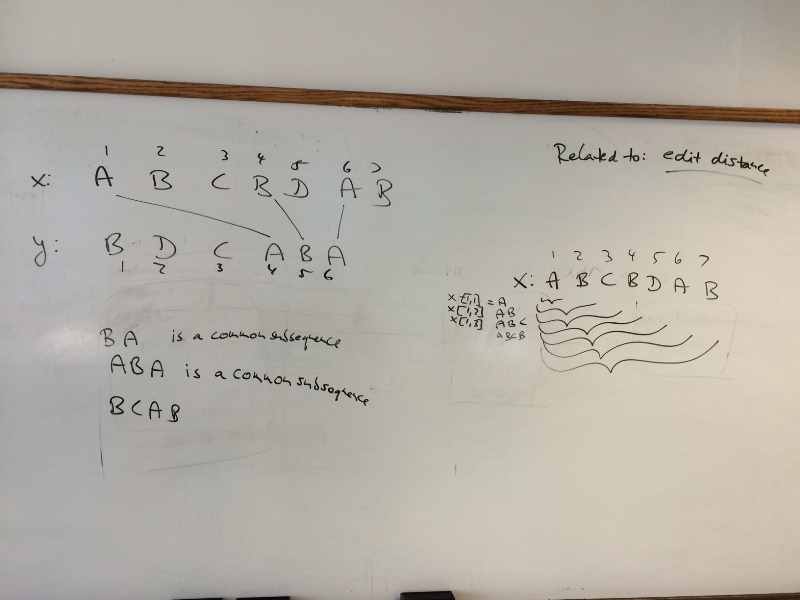 1 2 3 4 5 6 7
x: A B C B D A B
y: B D C A B A
1 2 3 4 5 6
BA is a common subsequence
ABA is a common subsequence
BCAB
Related to: edit distance
1 2 3 4 5 6 7
x: A B C B D A B
x[1,1] = A
x[1,2] AB
x[1,3] ABC
ABCB